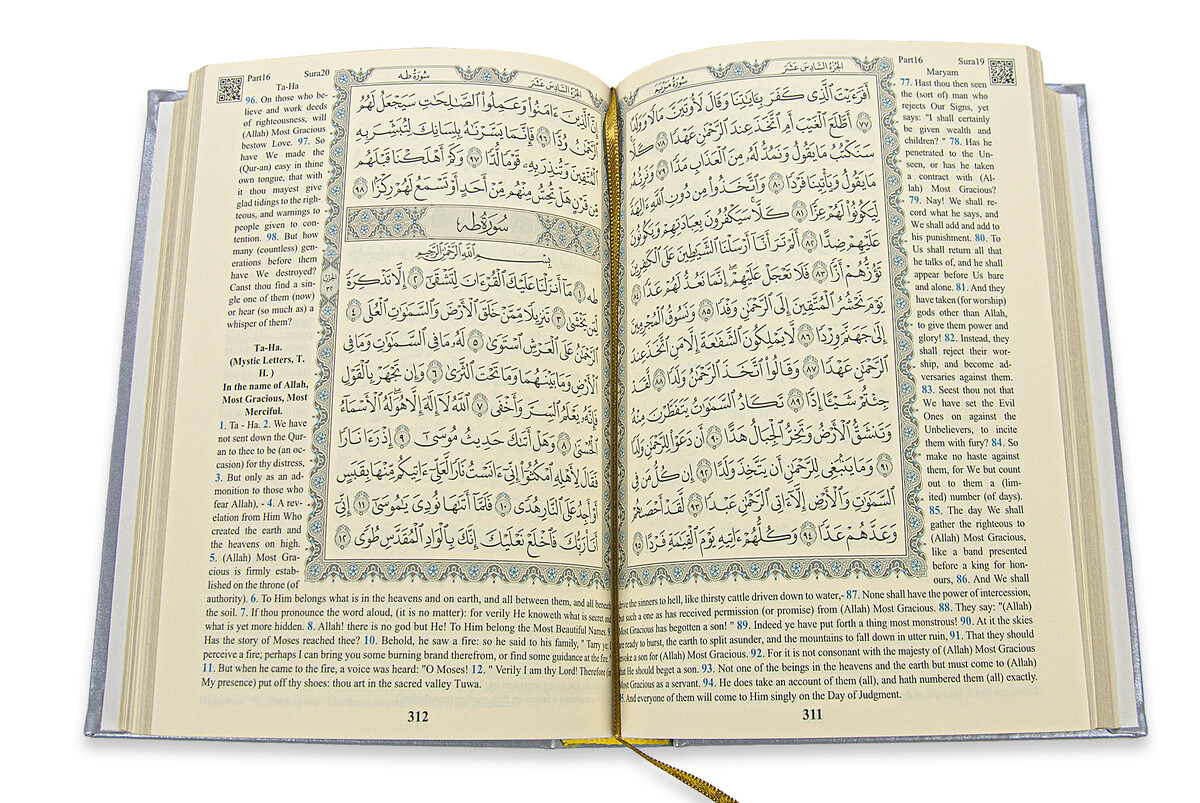 الجزء السادس عشر
سورة مريم
أَفَرَءَيْتَ ٱلَّذِى كَفَرَ بِـَٔايَـٰتِنَا وَقَالَ لَأُوتَيَنَّ مَالًا وَوَلَدًا
٧٧ أَطَّلَعَ ٱلْغَيْبَ أَمِ ٱتَّخَذَ عِندَ ٱلرَّحْمَـٰنِ عَهْدًا ٧٨ كَلَّا
سَنَكْتُبُ مَا يَقُولُ وَنَمُدُّ لَهُۥ مِنَ ٱلْعَذَابِ مَدًّا ٧٩ وَنَرِثُهُۥ
مَا يَقُولُ وَيَأْتِينَا فَرْدًا ٨٠ وَٱتَّخَذُوا۟ مِن دُونِ ٱللَّهِ ءَالِهَةً
لِّيَكُونُوا۟ لَهُمْ عِزًّا ٨١ كَلَّا سَيَكْفُرُونَ بِعِبَادَتِهِمْ وَيَكُونُونَ
عَلَيْهِمْ ضِدًّا ٨٢ أَلَمْ تَرَ أَنَّآ أَرْسَلْنَا ٱلشَّيَـٰطِينَ عَلَى ٱلْكَـٰفِرِينَ
تَؤُزُّهُمْ أَزًّا ٨٣ فَلَا تَعْجَلْ عَلَيْهِمْ إِنَّمَا نَعُدُّ لَهُمْ عَدًّا ٨٤
يَوْمَ نَحْشُرُ ٱلْمُتَّقِينَ إِلَى ٱلرَّحْمَـٰنِ وَفْدًا ٨٥ وَنَسُوقُ ٱلْمُجْرِمِينَ
إِلَىٰ جَهَنَّمَ وِرْدًا ٨٦ لَّا يَمْلِكُونَ ٱلشَّفَـٰعَةَ إِلَّا مَنِ ٱتَّخَذَ عِندَ
ٱلرَّحْمَـٰنِ عَهْدًا ٨٧ وَقَالُوا۟ ٱتَّخَذَ ٱلرَّحْمَـٰنُ وَلَدًا ٨٨ لَّقَدْ
جِئْتُمْ شَيْـًٔا إِدًّا ٨٩ تَكَادُ ٱلسَّمَـٰوَٰتُ يَتَفَطَّرْنَ مِنْهُ
وَتَنشَقُّ ٱلْأَرْضُ وَتَخِرُّ ٱلْجِبَالُ هَدًّا ٩٠ أَن دَعَوْا۟ لِلرَّحْمَـٰنِ وَلَدًا
٩١ وَمَا يَنۢبَغِى لِلرَّحْمَـٰنِ أَن يَتَّخِذَ وَلَدًا ٩٢ إِن كُلُّ مَن فِى
ٱلسَّمَـٰوَٰتِ وَٱلْأَرْضِ إِلَّآ ءَاتِى ٱلرَّحْمَـٰنِ عَبْدًا ٩٣ لَّقَدْ أَحْصَىٰهُمْ
وَعَدَّهُمْ عَدًّا ٩٤ وَكُلُّهُمْ ءَاتِيهِ يَوْمَ ٱلْقِيَـٰمَةِ فَرْدًا ٩٥
Part16 Sura19
Maryam
77. Hast thou then seen
the (sort of) man who
rejects Our Signs, yet
says: "I shall certainly
be given wealth and
children? " 78. Has he
penetrated to the Un-
seen, or has he taken
a contract with (Al-
lah) Most Gracious?
79. Nay! We shall re-
cord what he says, and
We shall add and add to
his punishment. 80. To
Us shall return all that
he talks of, and he shall
appear before Us bare
and alone. 81. And they
have taken (for worship)
gods other than Allah,
to give them power and
glory! 82. Instead, they
shall reject their wor-
ship, and become ad-
versaries against them.
83. Seest thou not that
We have set the Evil
Ones on against the
Unbelievers, to incite
them with fury? 84. So
make no haste against
them, for We but count
out to them a (lim-
ited) number (of days).
85. The day We shall
gather the righteous to
(Allah) Most Gracious,
like a band presented
before a king for hon-
ours, 86. And We shall
drive the sinners to hell, like thirsty cattle driven down to water,- 87. None shall have the power of intercession,
but such a one as has received permission (or promise) from (Allah) Most Gracious. 88. They say: "(Allah)
Most Gracious has begotten a son! " 89. Indeed ye have put forth a thing most monstrous! 90. At it the skies
are ready to burst, the earth to split asunder, and the mountains to fall down in utter ruin, 91. That they should
invoke a son for (Allah) Most Gracious. 92. For it is not consonant with the majesty of (Allah) Most Gracious
that He should beget a son. 93. Not one of the beings in the heavens and the earth but must come to (Allah)
Most Gracious as a servant. 94. He does take an account of them (all), and hath numbered them (all) exactly.
And everyone of them will come to Him singly on the Day of Judgment.
311
الجزء السادس عشر
سورة طه
إِنَّ ٱلَّذِينَ ءَامَنُوا۟ وَعَمِلُوا۟ ٱلصَّـٰلِحَـٰتِ سَيَجْعَلُ لَهُمُ
ٱلرَّحْمَـٰنُ وُدًّا ٩٦ فَإِنَّمَا يَسَّرْنَـٰهُ بِلِسَانِكَ لِتُبَشِّرَ بِهِ
ٱلْمُتَّقِينَ وَتُنذِرَ بِهِۦ قَوْمًا لُّدًّا ٩٧ وَكَمْ أَهْلَكْنَا قَبْلَهُم
مِّن قَرْنٍ هَلْ تُحِسُّ مِنْهُم مِّنْ أَحَدٍ أَوْ تَسْمَعُ لَهُمْ رِكْزًۢا ٩٨
سورة طه
بِسْمِ ٱللَّهِ ٱلرَّحْمَـٰنِ ٱلرَّحِيمِ
طه ١ مَآ أَنزَلْنَا عَلَيْكَ ٱلْقُرْءَانَ لِتَشْقَىٰٓ ٢ إِلَّا تَذْكِرَةً
لِّمَن يَخْشَىٰ ٣ تَنزِيلًا مِّمَّنْ خَلَقَ ٱلْأَرْضَ وَٱلسَّمَـٰوَٰتِ ٱلْعُلَى ٤
ٱلرَّحْمَـٰنُ عَلَى ٱلْعَرْشِ ٱسْتَوَىٰ ٥ لَهُۥ مَا فِى ٱلسَّمَـٰوَٰتِ وَمَا فِى
ٱلْأَرْضِ وَمَا بَيْنَهُمَا وَمَا تَحْتَ ٱلثَّرَىٰ ٦ وَإِن تَجْهَرْ بِٱلْقَوْلِ
فَإِنَّهُۥ يَعْلَمُ ٱلسِّرَّ وَأَخْفَى ٧ ٱللَّهُ لَآ إِلَـٰهَ إِلَّا هُوَ لَهُ ٱلْأَسْمَآءُ
ٱلْحُسْنَىٰ ٨ وَهَلْ أَتَىٰكَ حَدِيثُ مُوسَىٰٓ ٩ إِذْ رَءَا نَارًا
فَقَالَ لِأَهْلِهِ ٱمْكُثُوٓا۟ إِنِّىٓ ءَانَسْتُ نَارًا لَّعَلِّىٓ ءَاتِيكُم مِّنْهَا بِقَبَسٍ
أَوْ أَجِدُ عَلَى ٱلنَّارِ هُدًى ١٠ فَلَمَّآ أَتَىٰهَا نُودِىَ يَـٰمُوسَىٰٓ ١١ إِنِّىٓ
أَنَا۠ رَبُّكَ فَٱخْلَعْ نَعْلَيْكَ إِنَّكَ بِٱلْوَادِ ٱلْمُقَدَّسِ طُوًى ١٢
Part16 Sura20
Ta-Ha
96. On those who be-
lieve and work deeds
of righteousness, will
(Allah) Most Gracious
bestow Love. 97. So
have We made the
(Qur-an) easy in thine
own tongue, that with
it thou mayest give
glad tidings to the righ-
teous, and warnings to
people given to con-
tention. 98. But how
many (countless) gen-
erations before them
have We destroyed?
Canst thou find a sin-
gle one of them (now)
or hear (so much as) a
whisper of them?
Ta-Ha.
(Mystic Letters, T.
H. )
In the name of Allah,
Most Gracious, Most
Merciful.
1. Ta - Ha. 2. We have
not sent down the Qur-
an to thee to be (an oc-
casion) for thy distress,
3. But only as an ad-
monition to those who
fear Allah), - 4. A rev-
elation from Him Who
created the earth and
the heavens on high.
5. (Allah) Most Gra-
cious is firmly estab-
lished on the throne (of
authority). 6. To Him belongs what is in the heavens and on earth, and all between them, and all beneath
the soil. 7. If thou pronounce the word aloud, (it is no matter): for verily He knoweth what is secret and
what is yet more hidden. 8. Allah! there is no god but He! To Him belong the Most Beautiful Names. 9.
Has the story of Moses reached thee? 10. Behold, he saw a fire: so he said to his family, " Tarry ye; I
perceive a fire; perhaps I can bring you some burning brand therefrom, or find some guidance at the fire. "
11. But when he came to the fire, a voice was heard: "O Moses! 12. " Verily I am thy Lord! Therefore (in
My presence) put off thy shoes: thou art in the sacred valley Tuwa.
312